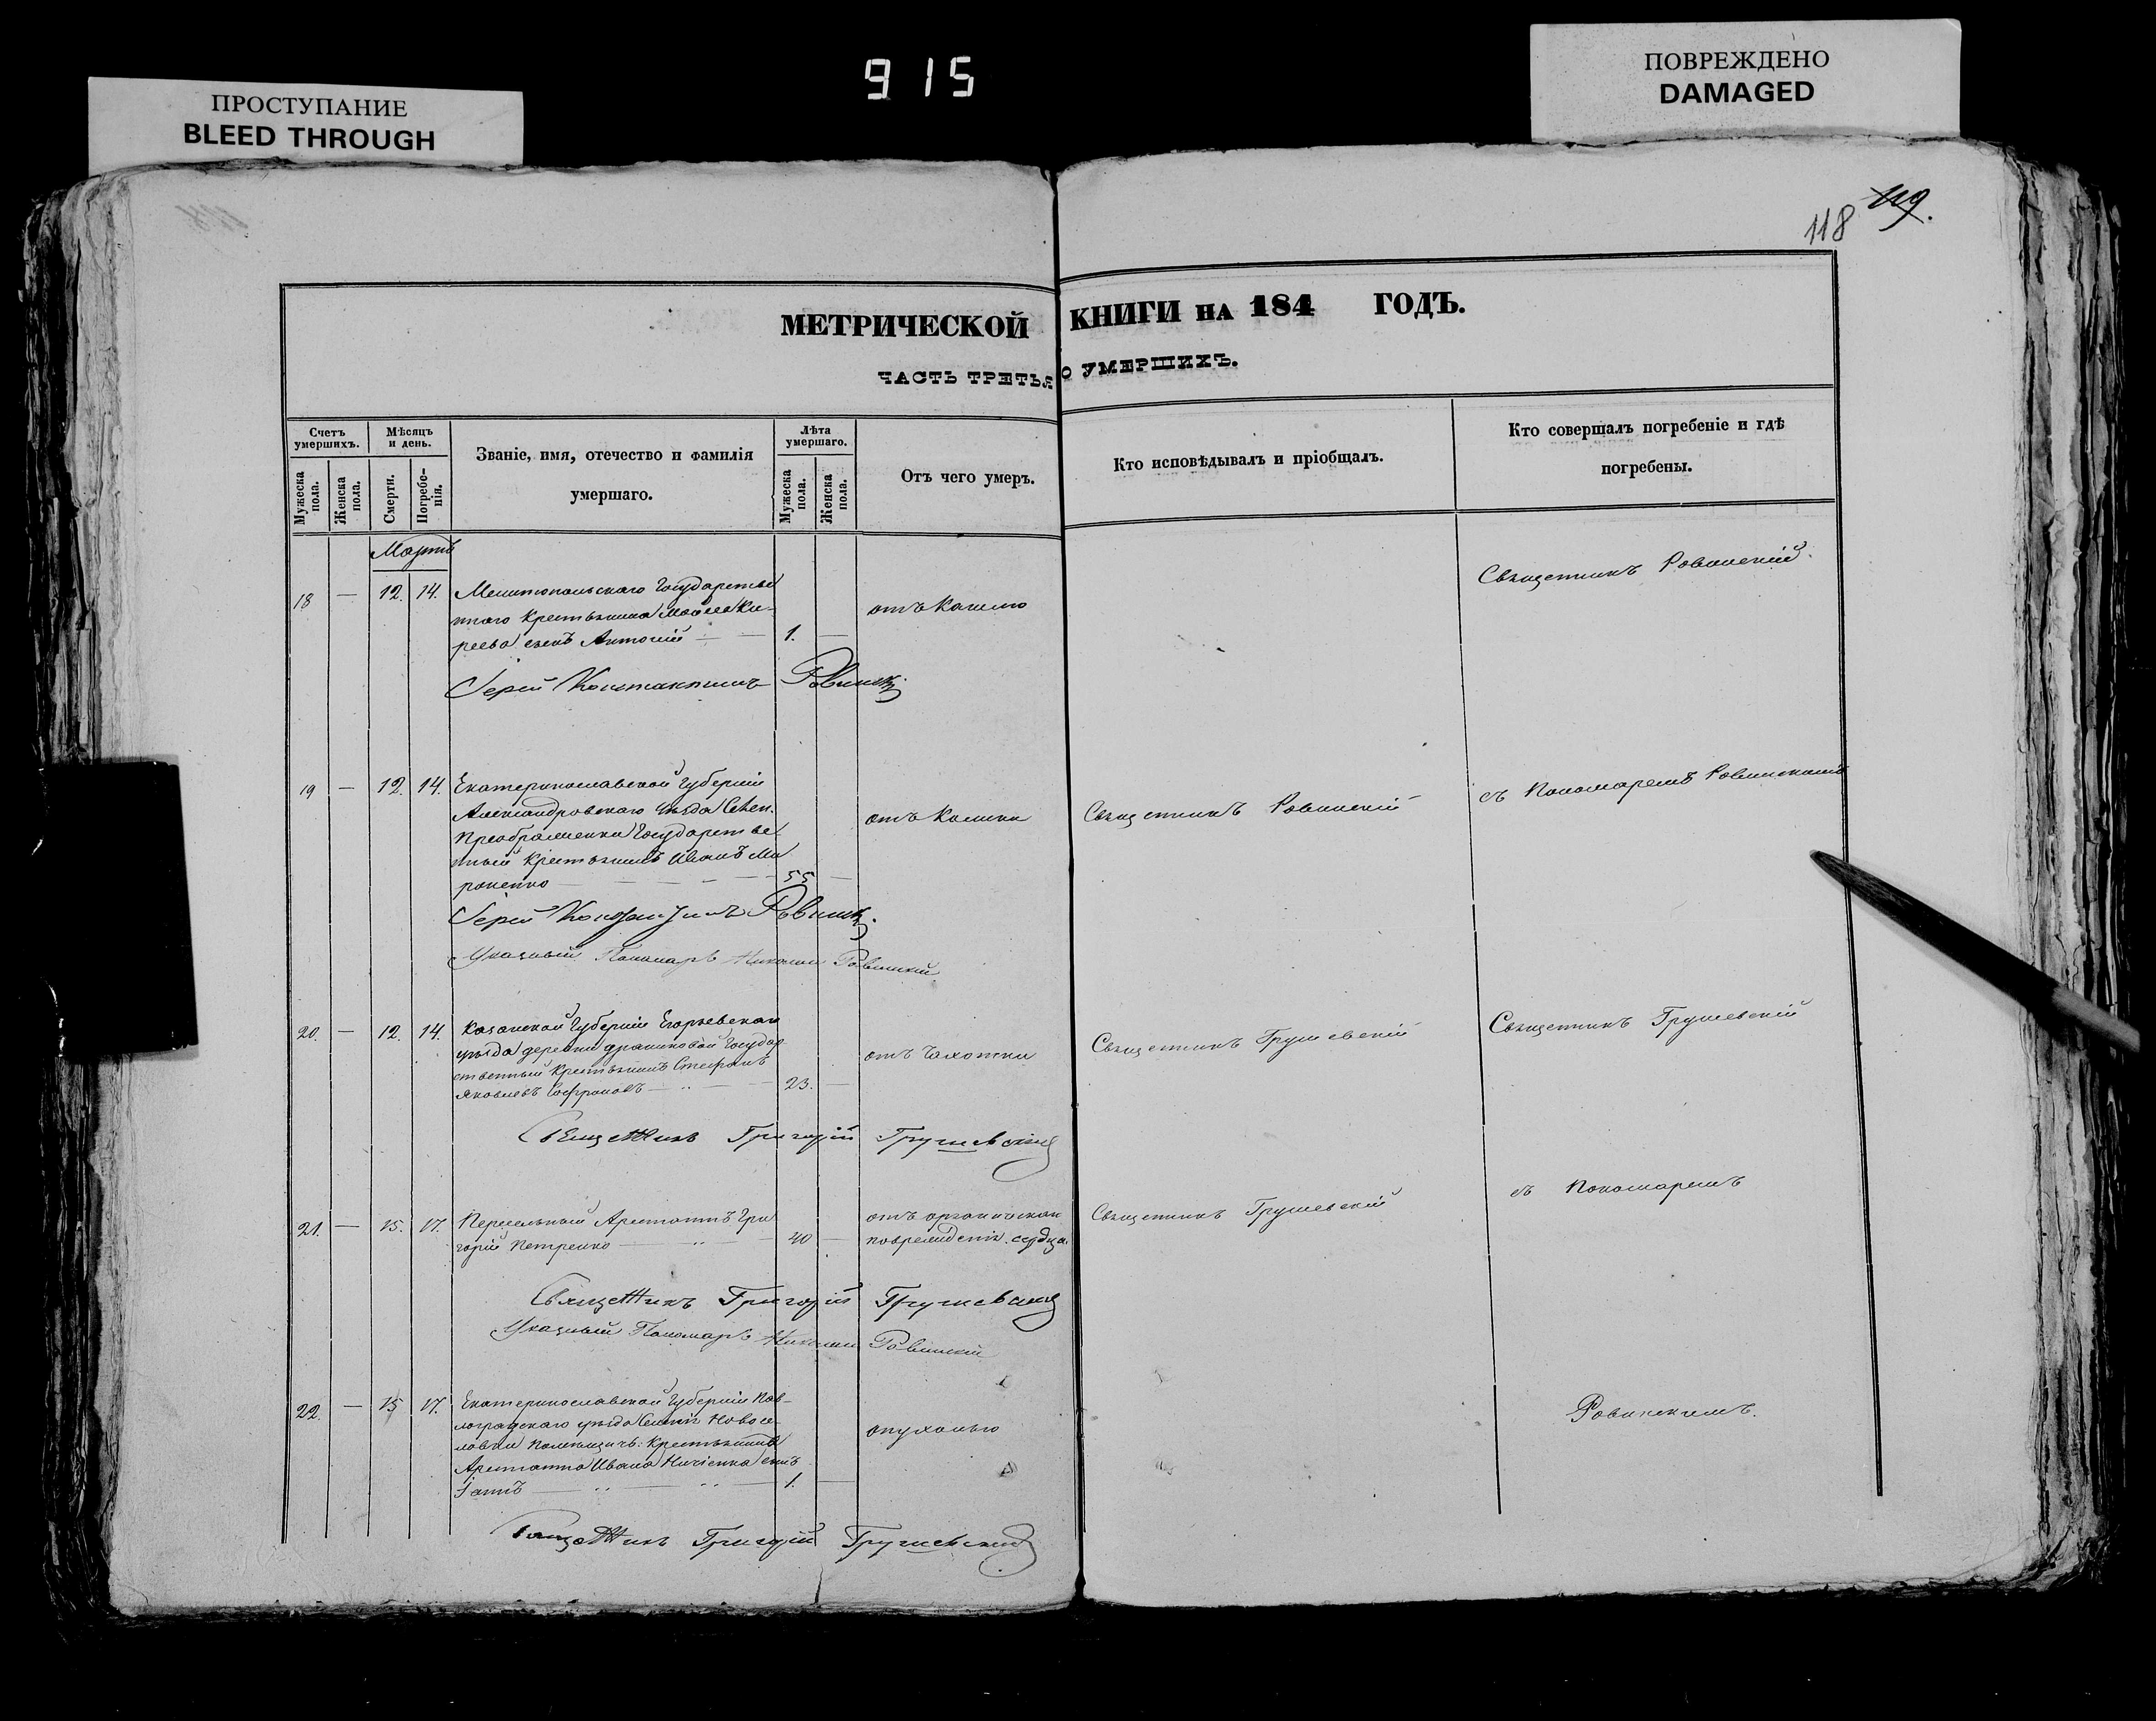 915
ПРОСТУПАНИЕ
BLEED THROUGH
ПОВРЕЖДЕНО
DAMAGED
118 119.
МЕТРИЧЕСКОЙ КНИГИ НА 184 ГОДЪ.
ЧАСТЬ ТРЕТЬЯ О УМЕРШИХЪ.
Счетъ умершихъ.
Мужеска пола.
Женска пола.
Мѣсяцъ и день.
Смерти.
Погребенія.
Званіе, имя, отечество и фамилія
умершаго.
Лѣта умершаго.
Мужеска пола.
Женска пола.
Отъ чего умеръ.
Кто исповѣдывалъ и пріобщалъ.
Кто совершалъ погребеніе и гдѣ
погребены.
Мартъ
18 — 12. 14. Мелитопольскаго Государстве
ннаго Крестьянина Ки-
реева сынъ Антоній — — 1. —
отъ Кашлю
Священникъ Ровинскій.
Іерей Константинъ Ровинскій
19 — 12. 14. Екатеринославской Губерніи
Александровскаго уѣзда Селен.
Преображенки Государстве
нный Крестьянинъ Иванъ Ми
роненко — 55 —
отъ Кашлю
Священникъ Ровинскій
съ Пономаремъ Ровинскимъ
Іерей Константинъ Ровинскій
Указный Пономарь Николай Ровинскій
20. — 12. 14. Казанской Губерніи Егорьевскаго
уѣзда деревни Государ
ственный Крестьянинъ Стефанъ
Яковлевъ Софроновъ — 23. —
отъ Чахотки
Священникъ Грушевскій
Священникъ Грушевскій
Священникъ Григорій Грушевскій
21. — 15. 17. Пересыльный Арестантъ Гри
горій Петренко — 40 —
отъ органическаго
поврежденія сердца.
Священникъ Грушевскій
съ Пономаремъ
Священникъ Григорій Грушевскій
Указный Пономарь Николай Ровинскій
22. — 15 17. Екатеринославской Губерніи Пав-
лоградскаго уѣзда Новосе-
ловки Помѣщичь: Крестьянина
Арестанта Ивана сынъ
— 1. —
опухолью
Ровинскимъ.
Священникъ Григорій Грушевскій